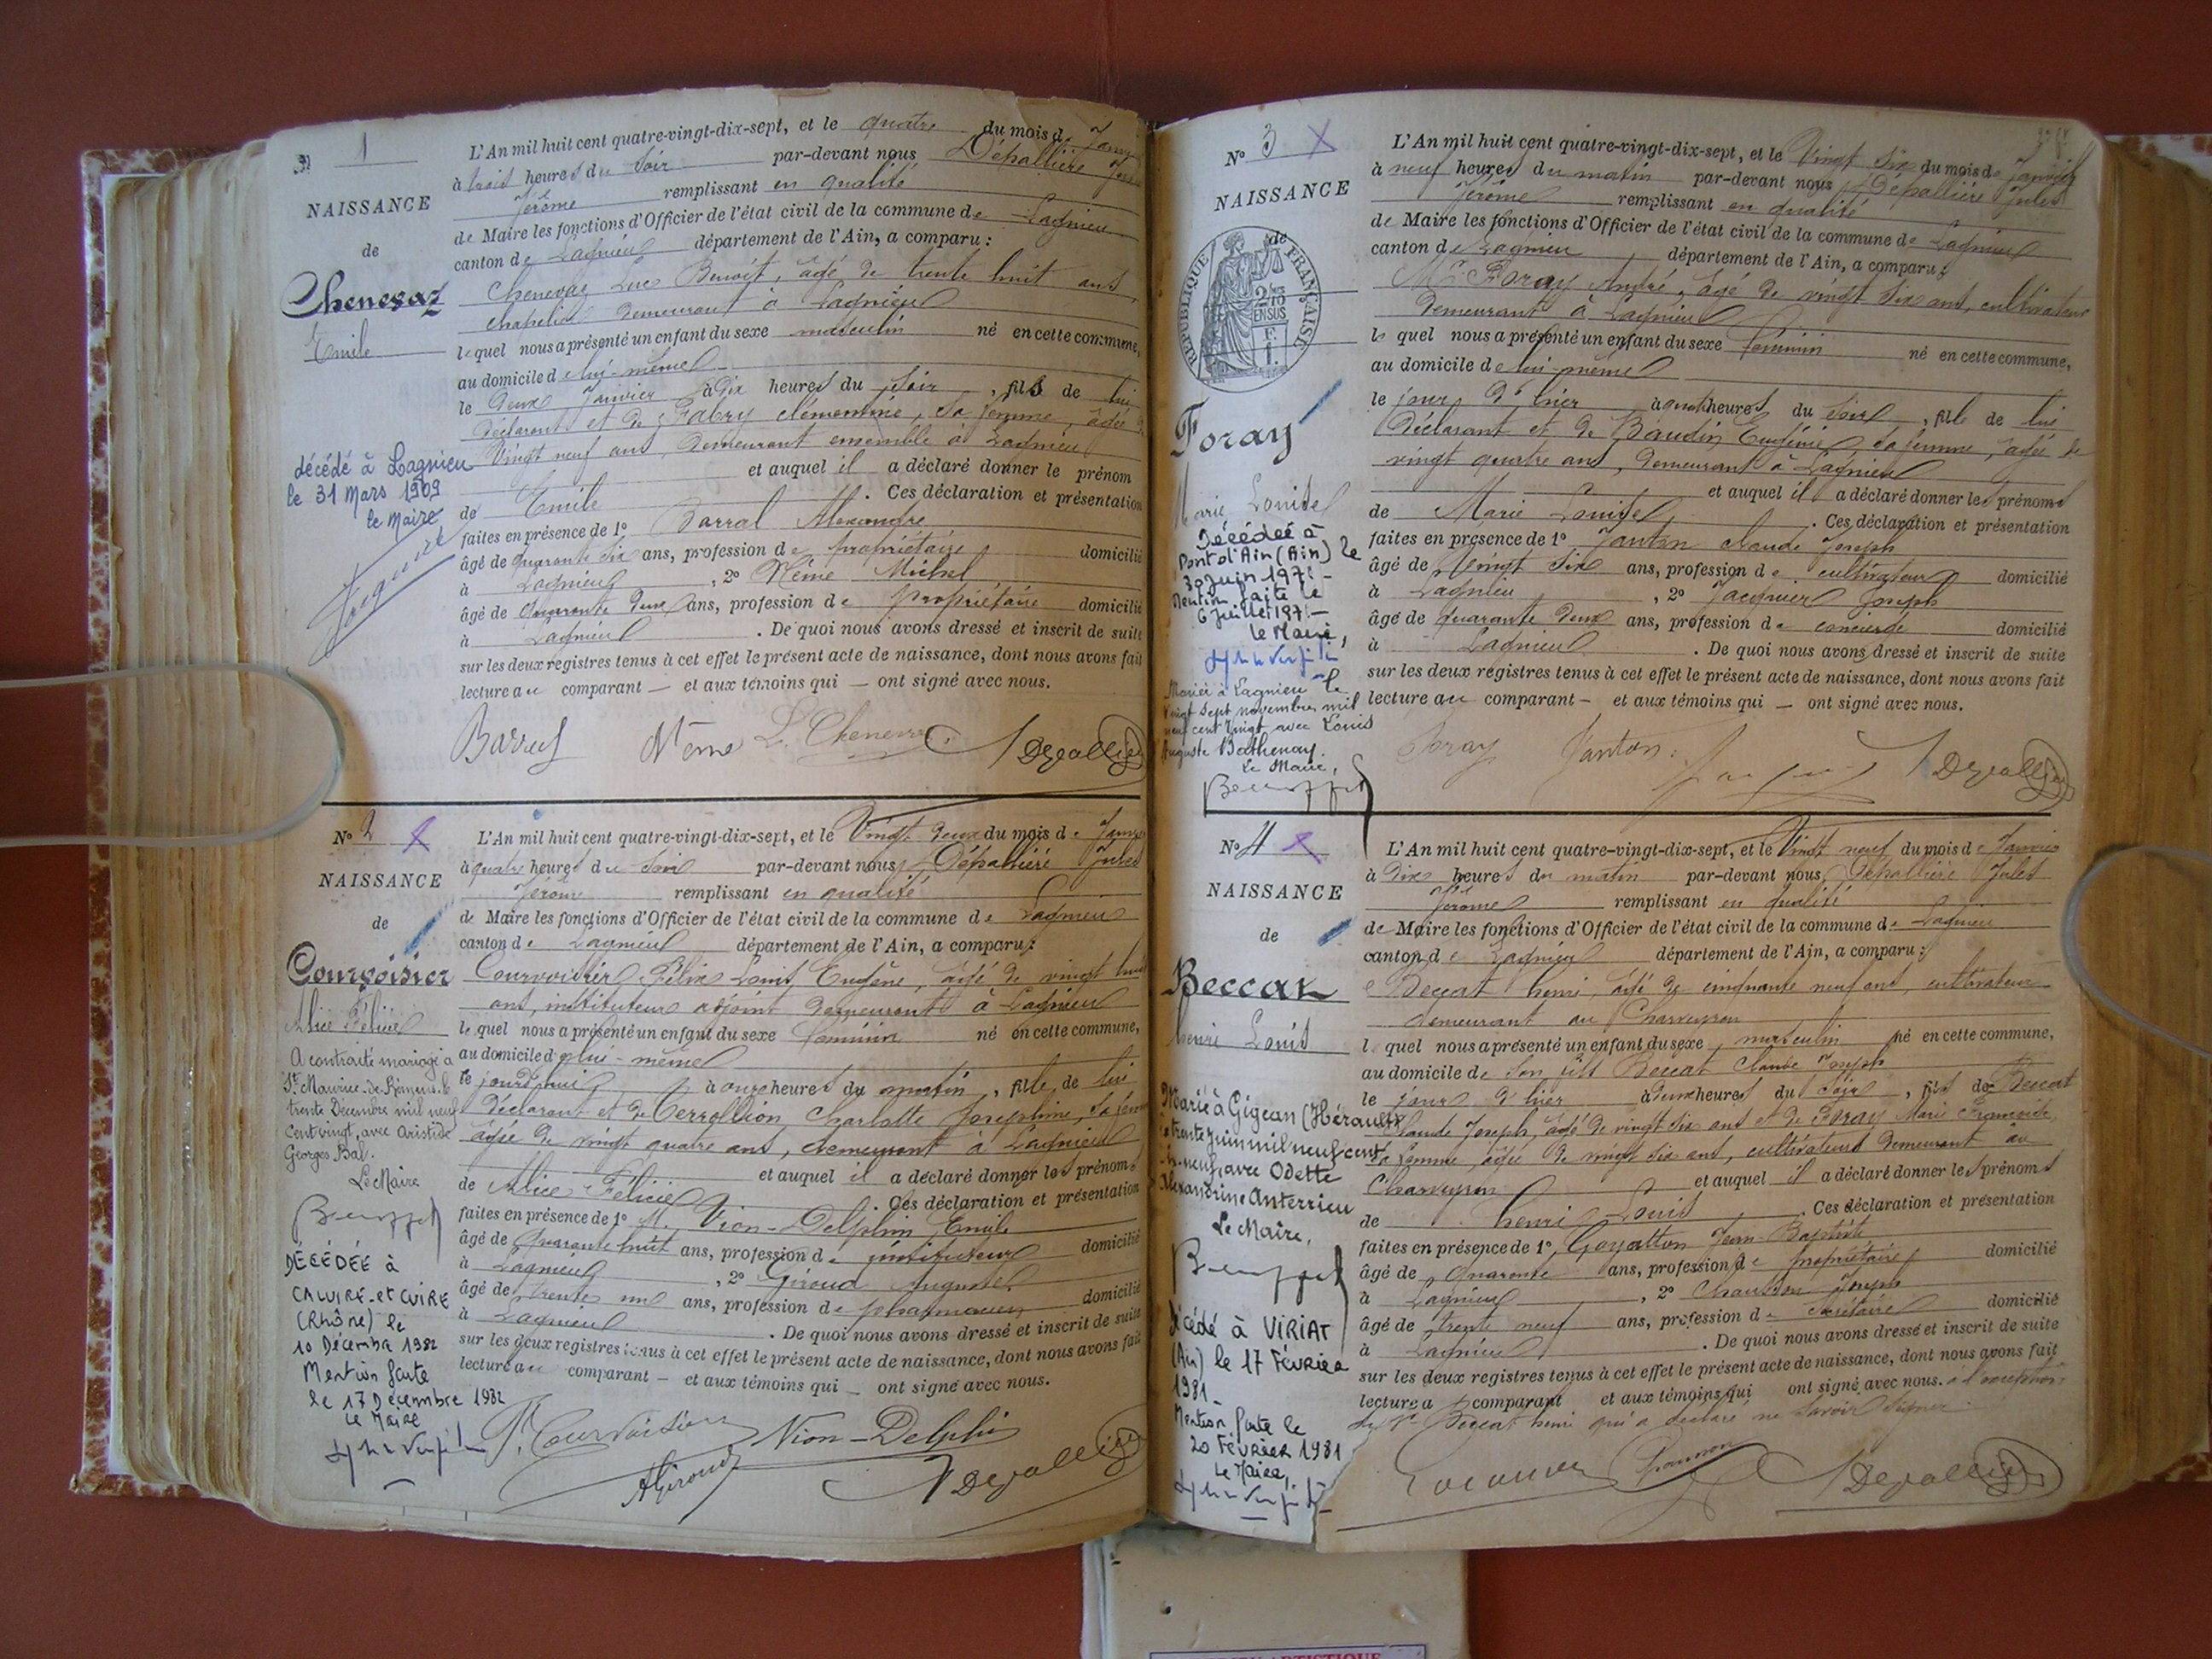 1
NAISSANCE
de
Chenevaz
Emile
décédé à Lagnieu
le 31 Mars 1909
le Maire
L'An mil huit cent quatre-vingt-dix-sept, et le quatre du mois de Janv
à trois heures du soir par-devant nous Dépallière
Jérôme remplissant en qualité
de Maire les fonctions d'Officier de l'état civil de la commune de Lagnieu
canton de Lagnieu département de l'Ain, a comparu :
Chenevaz Luc Benoit, âgé de trente huit ans
demeurant à Lagnieu
lequel nous a présenté un enfant du sexe masculin né en cette commune,
au domicile de lui-même
le deux Janvier à dix heures du soir, fils de lui
déclarant et de Fabry Clémentine, sa femme, âgée de
vingt neuf ans, demeurant ensemble à Lagnieu
et auquel il a déclaré donner le prénom
de Emile. Ces déclaration et présentation
faites en présence de 1º Barral Alexandre
âgé de quarante six ans, profession de propriétaire domicilié
à Lagnieu, 2º Nême Michel
âgé de quarante deux ans, profession de propriétaire domicilié
à Lagnieu. De quoi nous avons dressé et inscrit de suite
sur les deux registres tenus à cet effet le présent acte de naissance, dont nous avons fait
lecture au comparant — et aux témoins qui — ont signé avec nous.
Barral Nême L. Chenevaz Depallière
Nº 2 X
NAISSANCE
de
Courvoisier
Alice Félicie
A contracté mariage à
St Maurice-de-Rémens le
trente Décembre mil neuf
cent vingt, avec Aristide
Georges Bal.
Le Maire
DÉCÉDÉE à
CALUIRE-et-CUIRE
(Rhône) le
10 Décembre 1982
Mention faite
le 17 Décembre 1982
Le Maire
L'An mil huit cent quatre-vingt-dix-sept, et le Vingt deux du mois de Janv
à quatre heures du soir par-devant nous, Dépallière Jules
Jérôme remplissant en qualité
de Maire les fonctions d'Officier de l'état civil de la commune de Lagnieu
canton de Lagnieu département de l'Ain, a comparu :
Courvoisier Félix Louis Eugène, âgé de vingt huit
ans, instituteur adjoint demeurant à Lagnieu
lequel nous a présenté un enfant du sexe féminin né en cette commune,
au domicile de lui-même
le jourd'hui à onze heures du matin, fille de lui
déclarant et de Charlotte Joséphine, sa femme
âgée de vingt quatre ans, demeurant à Lagnieu
et auquel il a déclaré donner les prénoms
de Alice Félicie. Ces déclaration et présentation
faites en présence de 1º M. Vion-Delphin Emile
âgé de quarante huit ans, profession de instituteur domicilié
à Lagnieu, 2º Giroud Auguste
âgé de trente un ans, profession de pharmacien domicilié
à Lagnieu. De quoi nous avons dressé et inscrit de suite
sur les deux registres tenus à cet effet le présent acte de naissance, dont nous avons fait
lecture au comparant — et aux témoins qui — ont signé avec nous.
Courvoisier Vion-Delphin
AGiroud Depallière
Nº 3 X
NAISSANCE
de
RÉPUBLIQUE FRANÇAISE
2/10 EN SUS
Foray
Marie Louise
Décédée à
Pont d'Ain (Ain) le
Mention faite le
Le Maire,
Mariée à Lagnieu le
vingt sept novembre mil
neuf cent vingt avec Louis
Auguste Bathenay.
Le Maire,
L'An mil huit cent quatre-vingt-dix-sept, et le Vingt six du mois de Janvier
à neuf heures du matin par-devant nous Dépallière Jules
Jérôme remplissant en qualité
de Maire les fonctions d'Officier de l'état civil de la commune de Lagnieu
canton de Lagnieu département de l'Ain, a comparu :
Mr Foray André, âgé de vingt six ans, cultivateur
demeurant à Lagnieu
le quel nous a présenté un enfant du sexe féminin né en cette commune,
au domicile de lui-même
le jour d'hier à quatre heures du soir, fille de lui
déclarant et de Baudin Eugénie sa femme, âgée de
vingt quatre ans, demeurant à Lagnieu
et auquel il a déclaré donner les prénoms
de Marie Louise. Ces déclaration et présentation
faites en présence de 1º Janton Claude Joseph
âgé de vingt six ans, profession de cultivateur domicilié
à Lagnieu, 2º Jacquier Joseph
âgé de quarante deux ans, profession de concierge domicilié
à Lagnieu. De quoi nous avons dressé et inscrit de suite
sur les deux registres tenus à cet effet le présent acte de naissance, dont nous avons fait
lecture au comparant — et aux témoins qui — ont signé avec nous.
Foray Janton Depallière
Nº 4 X
NAISSANCE
de
Beccat
henri Louis
Marié à Gigean (Hérault)
le trente juin mil neuf cent
neuf avec Odette
Alexandrine Anterrieu
Le Maire,
Décédé à VIRIAT
(Ain) le 17 Février
1981
Mention faite le
20 Février 1981
Le Maire,
L'An mil huit cent quatre-vingt-dix-sept, et le Vingt neuf du mois de Janvier
à dix heures du matin par-devant nous, Dépallière Jules
Jérôme remplissant en qualité
de Maire les fonctions d'Officier de l'état civil de la commune de Lagnieu
canton de Lagnieu département de l'Ain, a comparu :
Beccat henri, âgé de cinquante neuf ans, cultivateur
demeurant au Charveyron
lequel nous a présenté un enfant du sexe masculin né en cette commune,
au domicile de son fils Beccat Claude Joseph
le jour d'hier à deux heures du soir, fils de Beccat
Claude Joseph, âgé de vingt six ans et de Foray Marie Françoise,
sa femme, âgée de vingt six ans, cultivateurs demeurant au
Charveyron et auquel il a déclaré donner les prénoms
de henri Louis. Ces déclaration et présentation
faites en présence de 1º, Goyatton Jean-Baptiste
âgé de quarante ans, profession de propriétaire domicilié
à Lagnieu, 2º Chausson Joseph
âgé de trente neuf ans, profession de secrétaire domicilié
à Lagnieu. De quoi nous avons dressé et inscrit de suite
sur les deux registres tenus à cet effet le présent acte de naissance, dont nous avons fait
lecture a comparant et aux témoins qui ont signé avec nous. à l'exception
du Sr Beccat henri qui a déclaré ne savoir signer.
Depallière